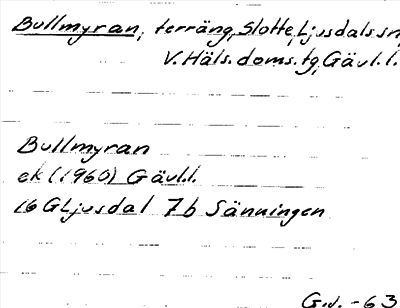 Bullmyran, terräng, Slotte, Ljusdals sn,
V. Häls. doms. tg, Gävl. l.
Bullmyran
ek (1960) Gävl.l.
16 G Ljusdal 7b Sänningen
G.J. -63